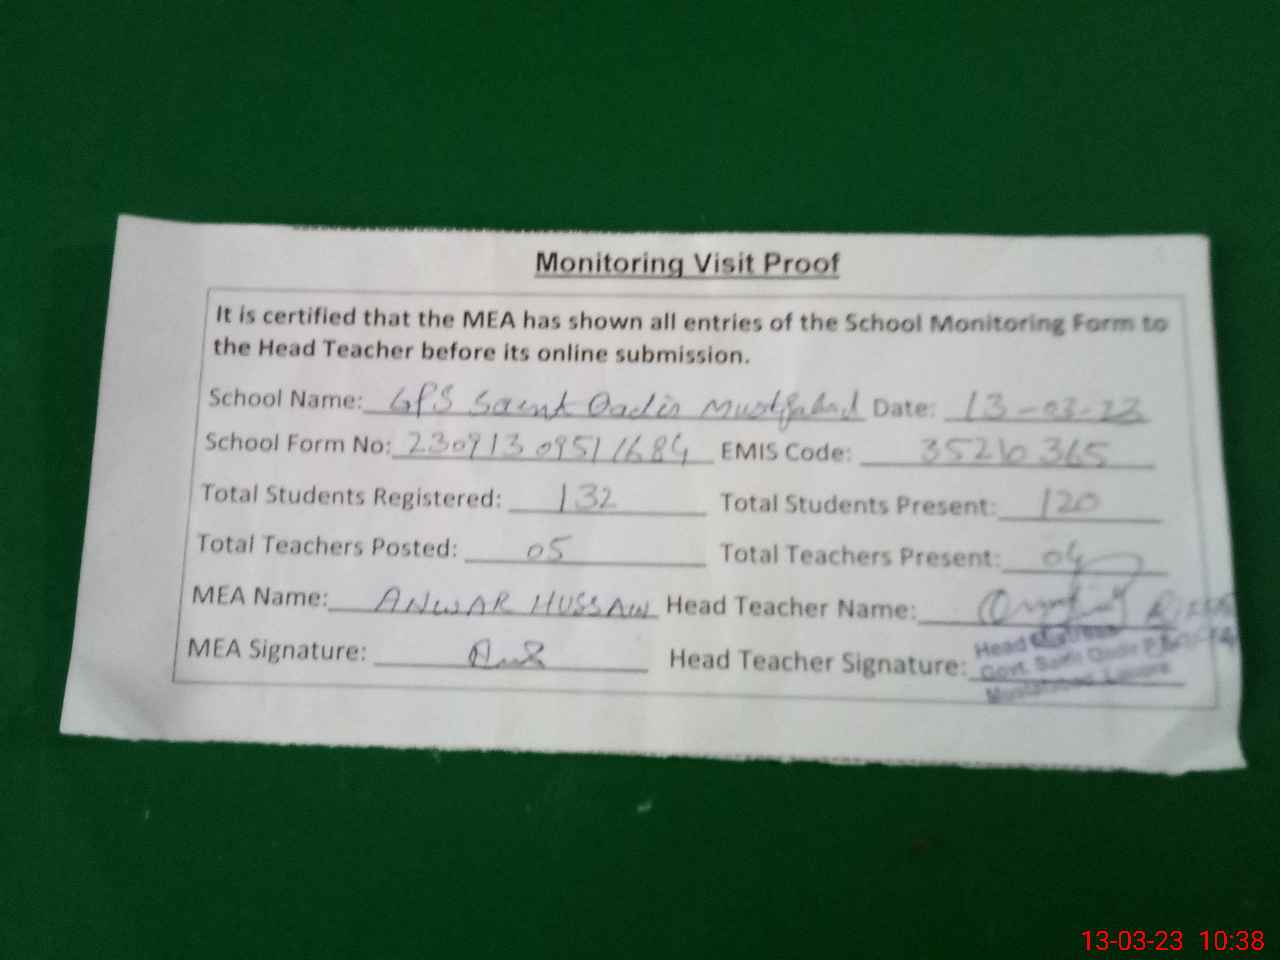 Monitoring Visit Proof
It is certified that the MEA has shown all entries of the School Monitoring Form to
the Head Teacher before its online submission.
School Name: GPS Saint Qadir Mustfabad Date: 13-03-23
School Form No: 23091309511684 EMIS Code: 35210365
Total Students Registered: 132 Total Students Present: 120
Total Teachers Posted: 05 Total Teachers Present: 04
MEA Name: ANWAR HUSSAIN Head Teacher Name:
MEA Signature: Head Teacher Signature:
Head
Govt.
13-03-23 10:38